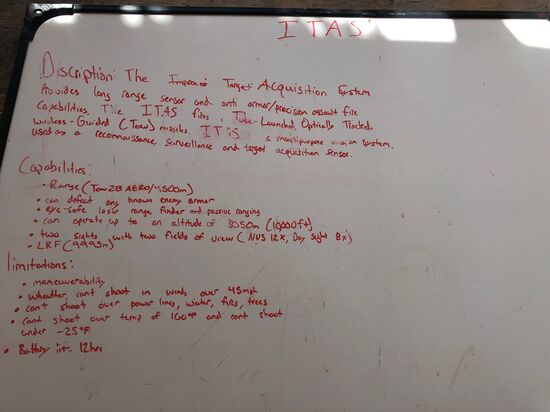 ITAS
Discription: The Improved Target Acquisition System
Provides long range sensor and anti armor/precision assault fire
Capabilities. The ITAS fires Tube-Launched, Optically Tracked,
wireless-Guided (Tow) missiles. ITAS a multipurpose system.
used as a reconnaissance, surveillance and target acquisition sensor.
Capabilities:
• Range (Tow 2B AERO/4,500m)
• can defeat any known enemy armor
• eye-safe laser range finder and passive ranging
• can operate up to an altitude of 3050m (10,000ft)
• two sights with two fields of view (NVS 12x, Day sight 8x)
• LRF (9,995m)
limitations:
• maneuverability
• Wheather, cant shoot in winds over 45mph
• can't shoot over power lines, water, fires, trees
• cant shoot over temp of 100° and cant shoot
under -25°F
• Battery 12hrs